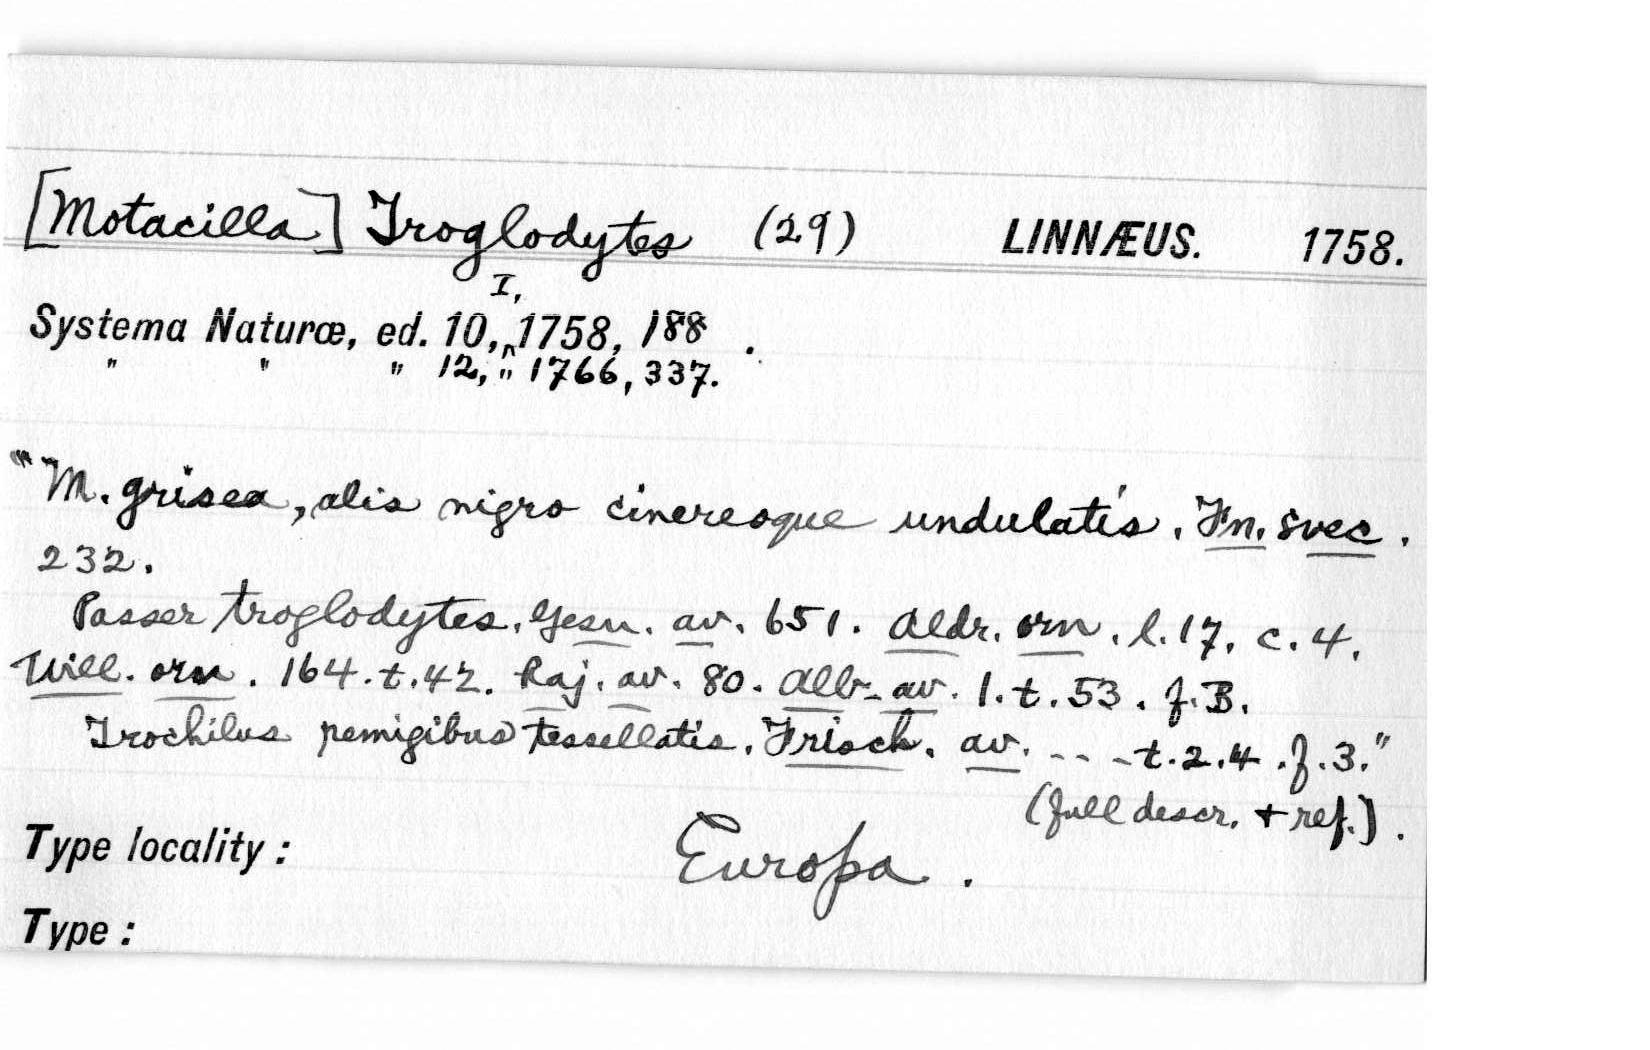 [Motacilla] Troglodytes (29) LINNÆUS. 1758.
I,
Systema Naturæ, ed. 10,^1758, 188 .
" " " 12, " 1766, 337.
"M. grisea, alis nigro cinereoque undulatis. Fn. svec.
232.
Passer troglodytes. Gesn. av. 651. Aldr. orn. l. 17. c. 4.
Will. orn. 164. t. 42. Raj. av. 80. Alb. av. 1. t. 53. f. B.
Trochilus remigibus tessellatis. Frisch. av. - - - t. 24. f. 3."
(full descr. + ref.).
Type locality: Europa.
Type: